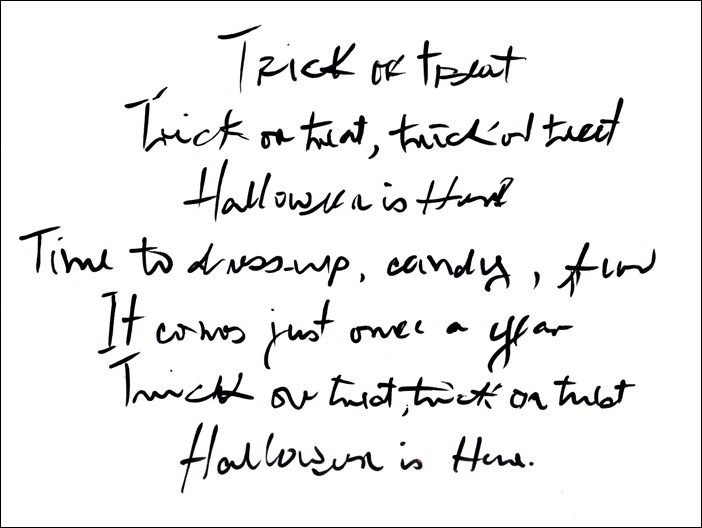 Trick or treat
Trick or treat, trick or treat
Halloween is Here
Time to dress-up, candy, fun
It comes just once a year
Trick or treat, trick or treat
Halloween is Here.